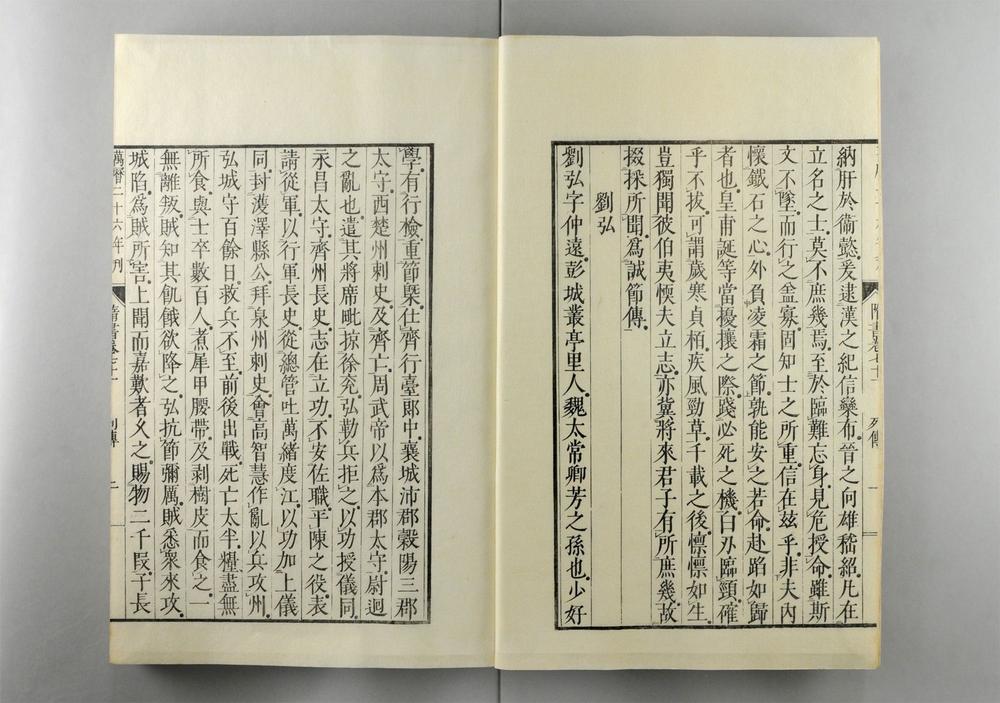 納肝於衞懿爰逮漢之紀信欒布晉之向雄嵇紹凡在
立名之士莫不庶幾焉至於臨難忘身見危授命雖斯
文不墜而行之葢寡固知士之所重信在玆乎非夫内
懷鐵石之心外負凌霜之節孰能安之若命赴蹈如歸
者也皇甫誕等當擾攘之際踐必死之機白刃臨頸確
乎不拔可謂歲寒貞柏疾風勁草千載之後懍懍如生
豈獨聞彼伯夷懦夫立志亦冀將來君子有所庶幾故
掇採所聞爲誠節傳
劉弘
劉弘字仲遠彭城叢亭里人魏太常卿芳之孫也少好
學有行檢重節槩仕齊行臺郎中襄城沛郡穀陽三郡
太守西楚州刺史及齊亡周武帝以爲本郡太守尉迥
之亂也遣其將席毗掠徐兖弘勒兵拒之以功授儀同
永昌太守齊州長史志在立功不安佐職平陳之役表
請從軍以行軍長史從總管吐萬緒度江以功加上儀
同封濩澤縣公拜泉州刺史會高智慧作亂以兵攻州
弘城守百餘日救兵不至前後出戰死亡太半糧盡無
所食與士卒數百人煮犀甲腰帶及剥樹皮而食之一
無離叛賊知其飢餓欲降之弘抗節彌厲賊悉衆來攻
城陷爲賊所害上聞而嘉歎者久之賜物二千段子長
萬曆二十六年刊 隋書卷七十一 列傳 二